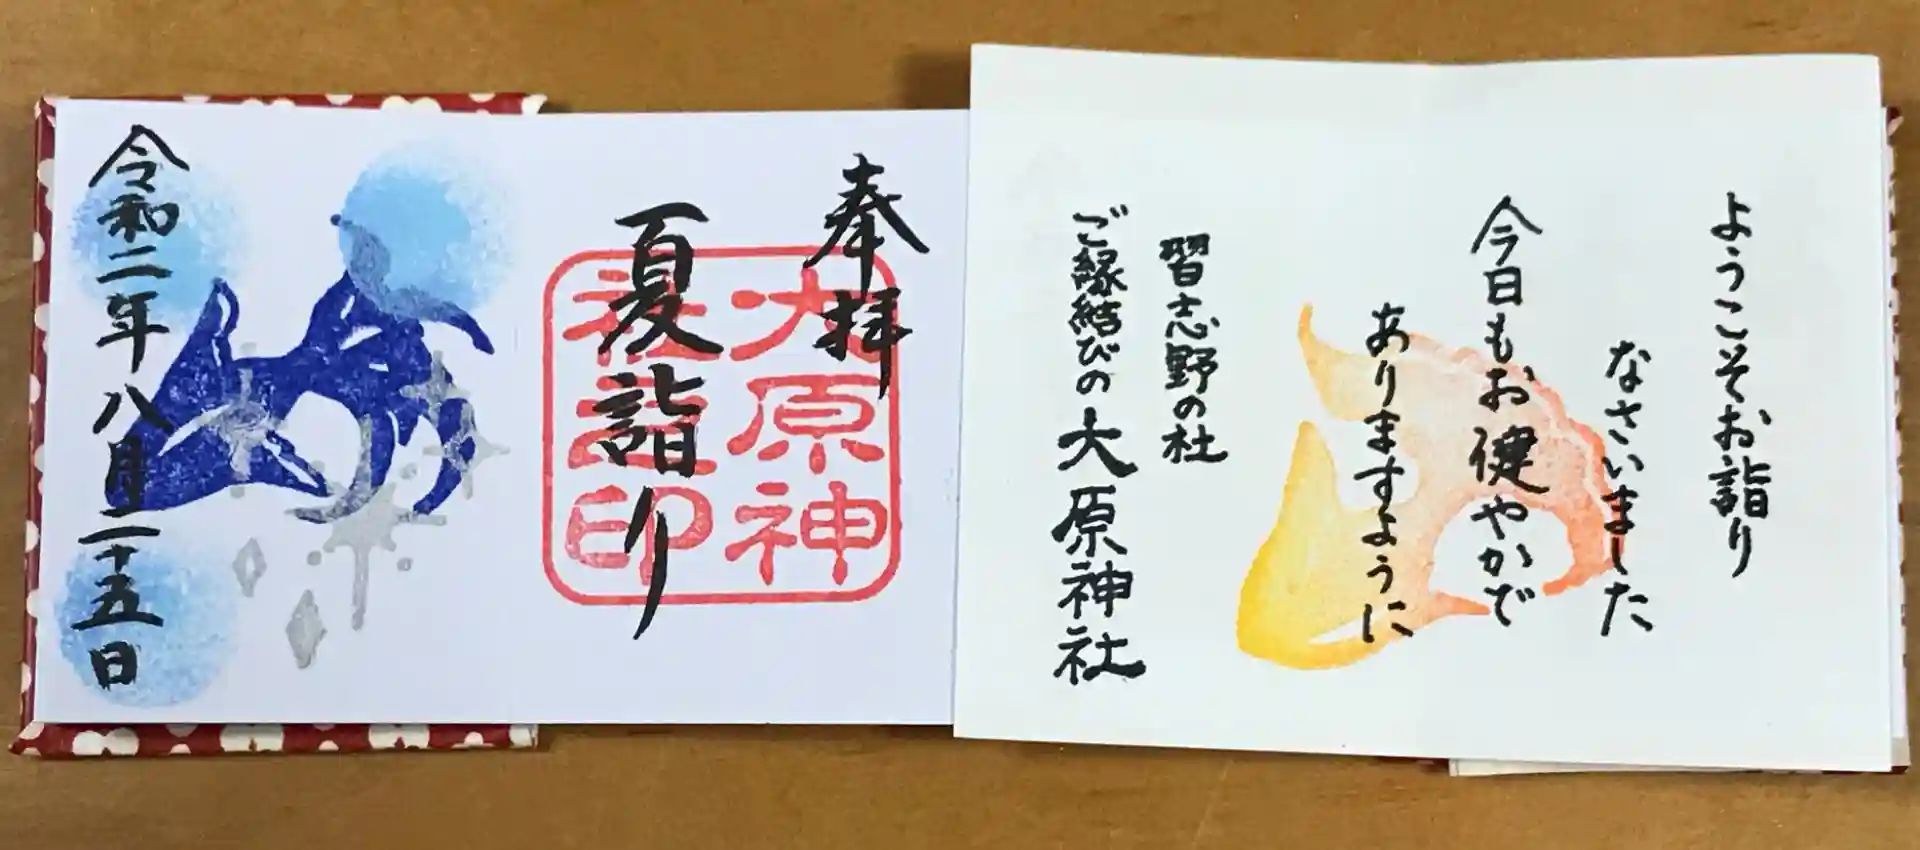 ようこそお詣り
なさいました
今日もお健やかで
ありますように
習志野の社
ご縁結びの大原神社
奉拝
大原神
社之印
夏詣り
令和二年八月二十五日